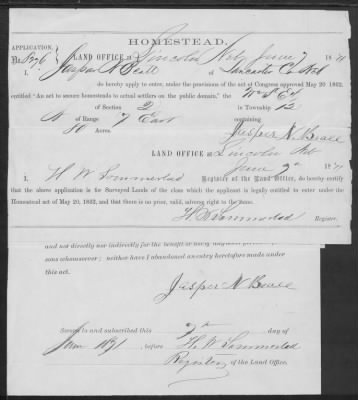 HOMESTEAD.
APPLICATION. Land Office at Lincoln Neb June 7 1871
No. I, Jasper N. of Lancaster Co Neb
do hereby apply to enter, under the provisions of the act of Congress approved May 20, 1862,
entitled "An act to secure homesteads to actual settlers on the public domain," the
of Section 2 in Township 12
of Range 7 East containing
80 Acres.
Jasper N.
Land Office at Lincoln Neb
June 7th 1871
I, H. W. Sommerlad Register of the Land Office, do hereby certify
that the above application is for Surveyed Lands of the class which the applicant is legally entitled to enter under the
Homestead act of May 20, 1862, and that there is no prior, valid, adverse right to the same.
H. W. Sommerlad Register.
and not directly nor indirectly for the benefit of
sons whomsoever; neither have I abandoned an entry heretofore made under
this act.
Jasper N.
Sworn to and subscribed this 7th day of
June 1871, before H. W. Sommerlad
Register of the Land Office.